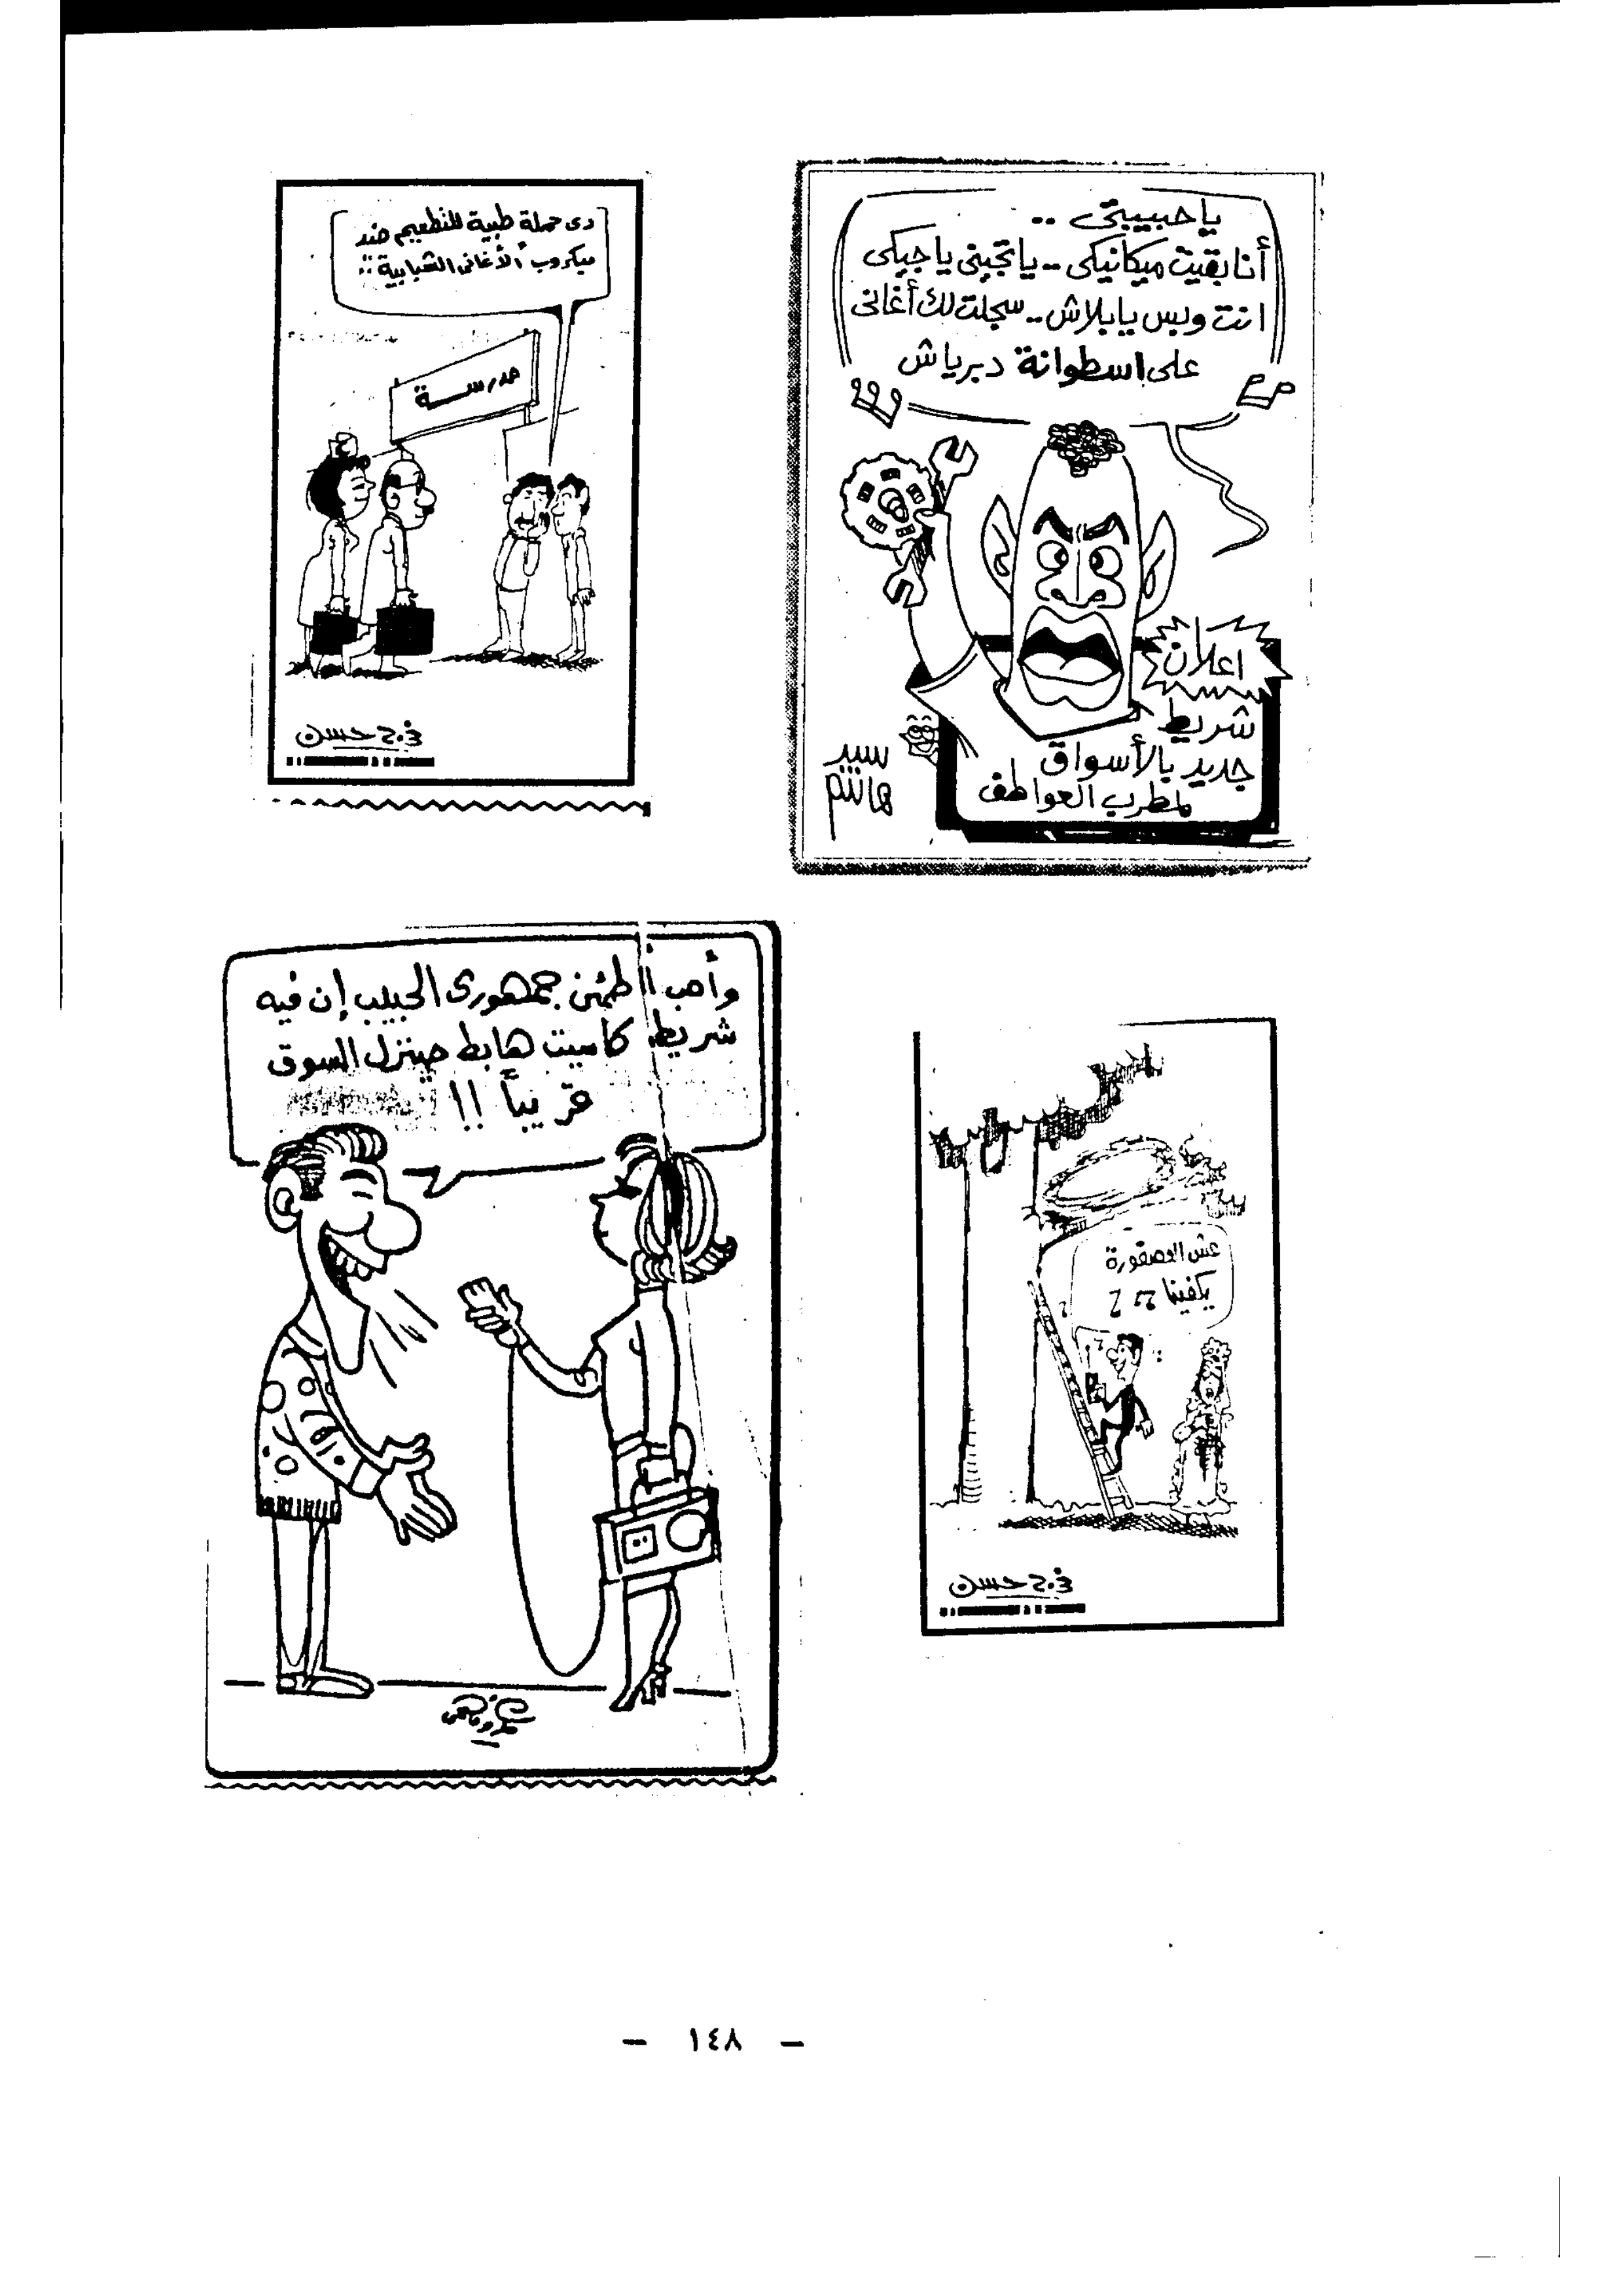 يا حبيبتى ..
أنا بقيت ميكانيكى .. يا تجينى يا جيكى
انت وبس يا بلاش .. سجلت لك أغانى
على اسطوانة دبرياش
اعلان
شريط
جديد بالأسواق
لمطرب العواطف
سيد
هاشم
دى حملة طبية للتطعيم ضد
ميكروب "الأغانى الشبابية" ..
مدرسة
فرج حسن
وأحب أطمئن جمهورى الحبيب إن فيه
شريط كاسيت هابط حينزل السوق
قريباً !!
عش العصفورة
يكفينا
فرج حسن
- ١٤٨ -